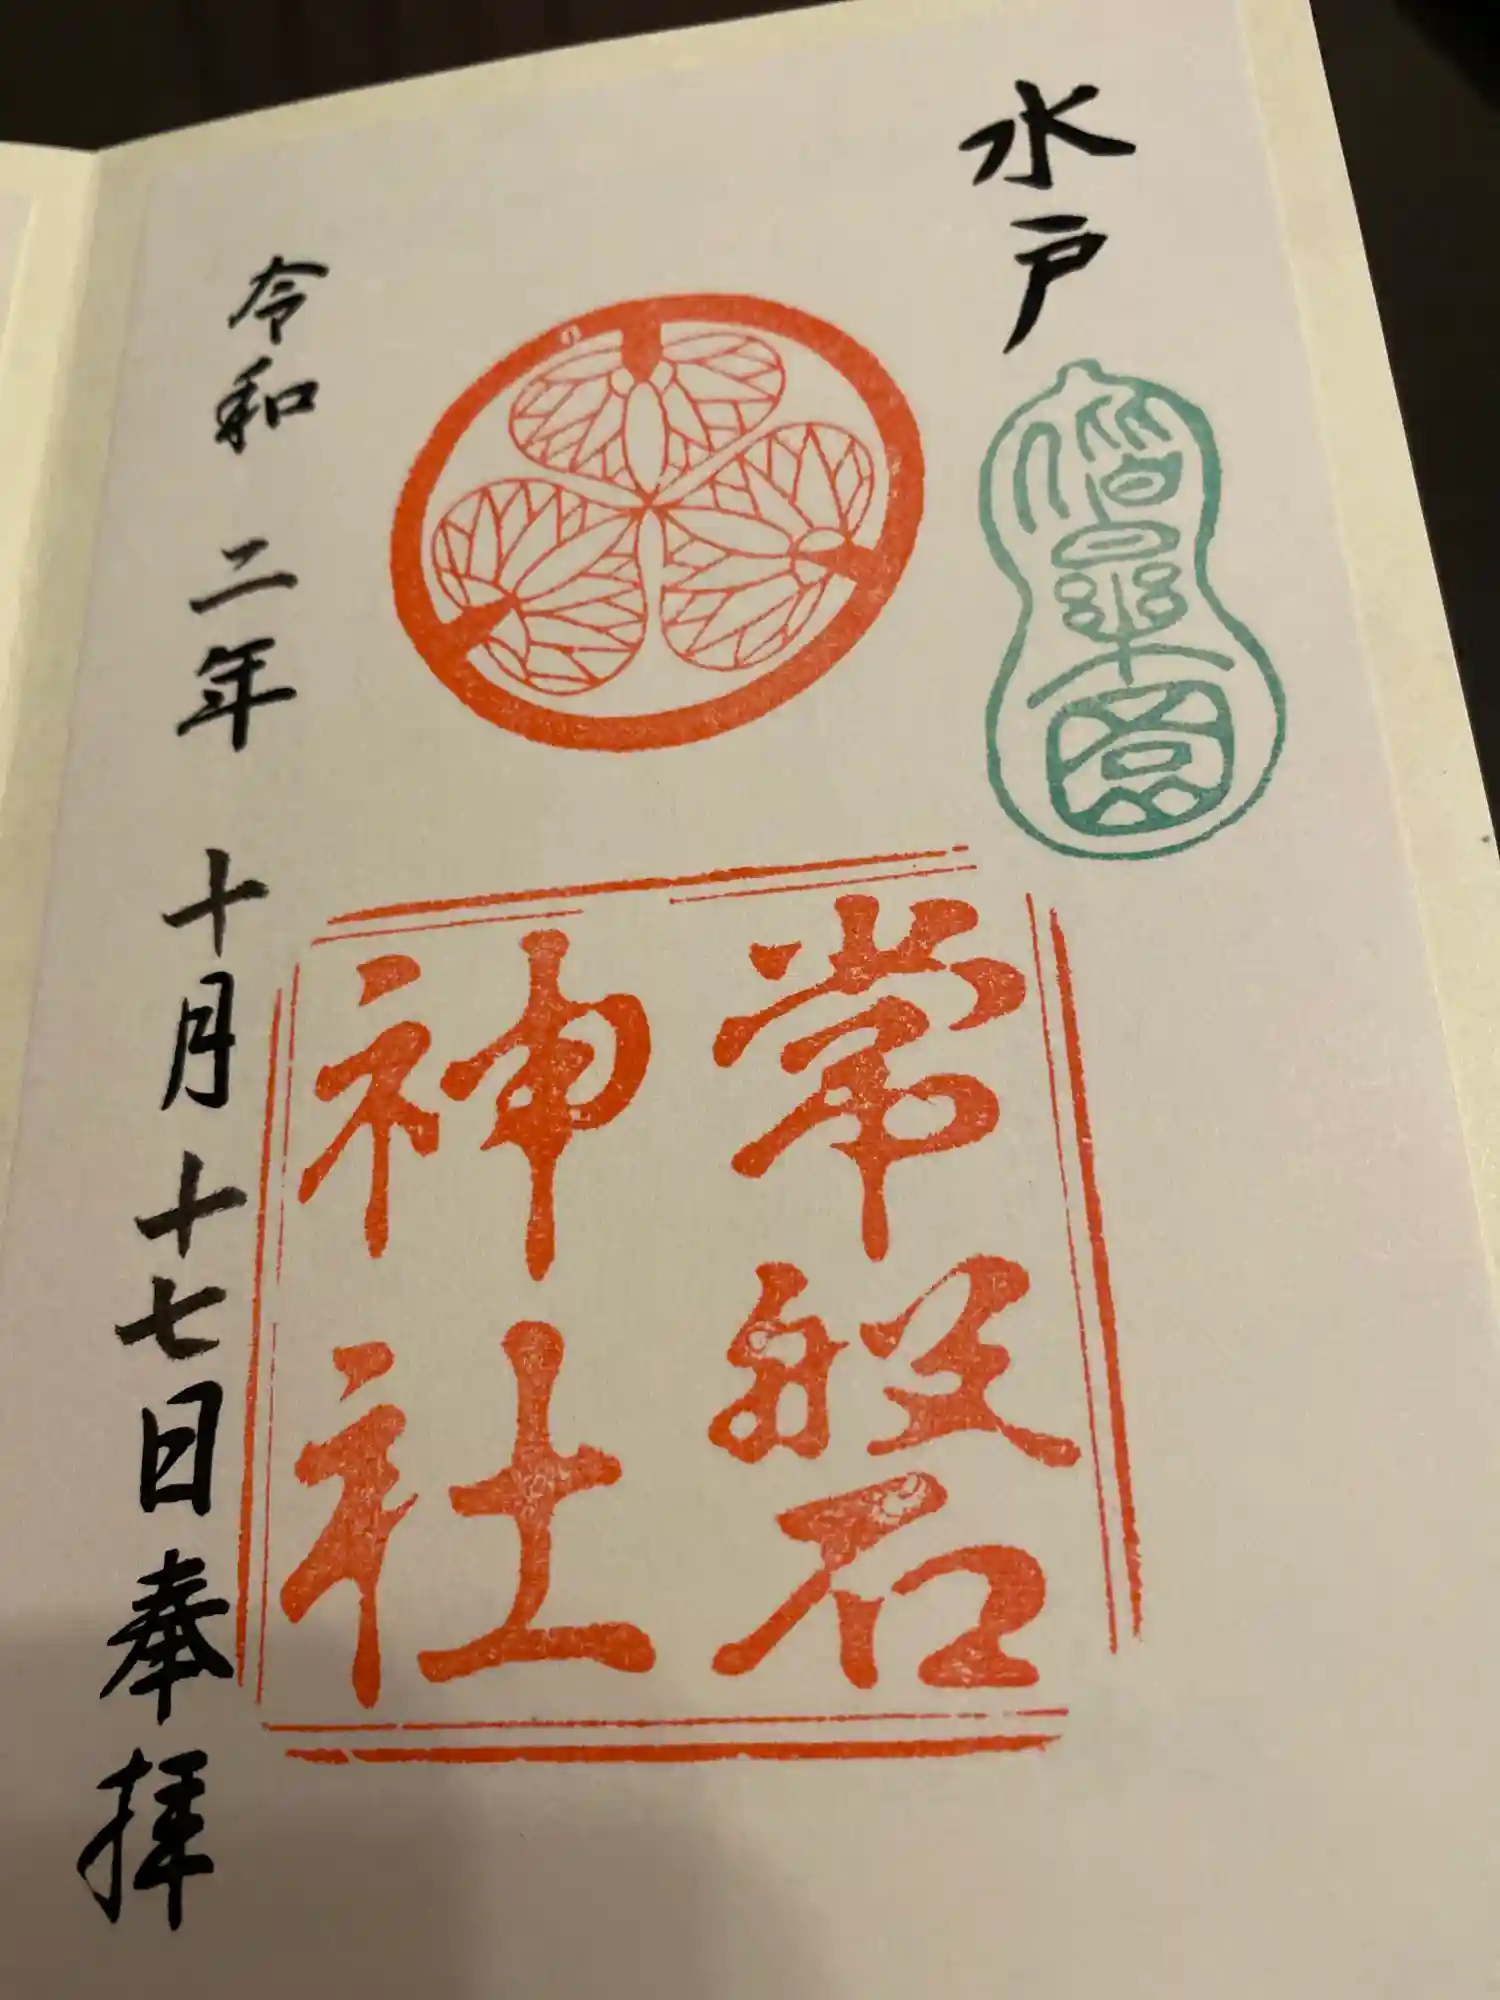 水戸
偕楽園
常磐
神社
令和 二年 十月 十七日 奉拝